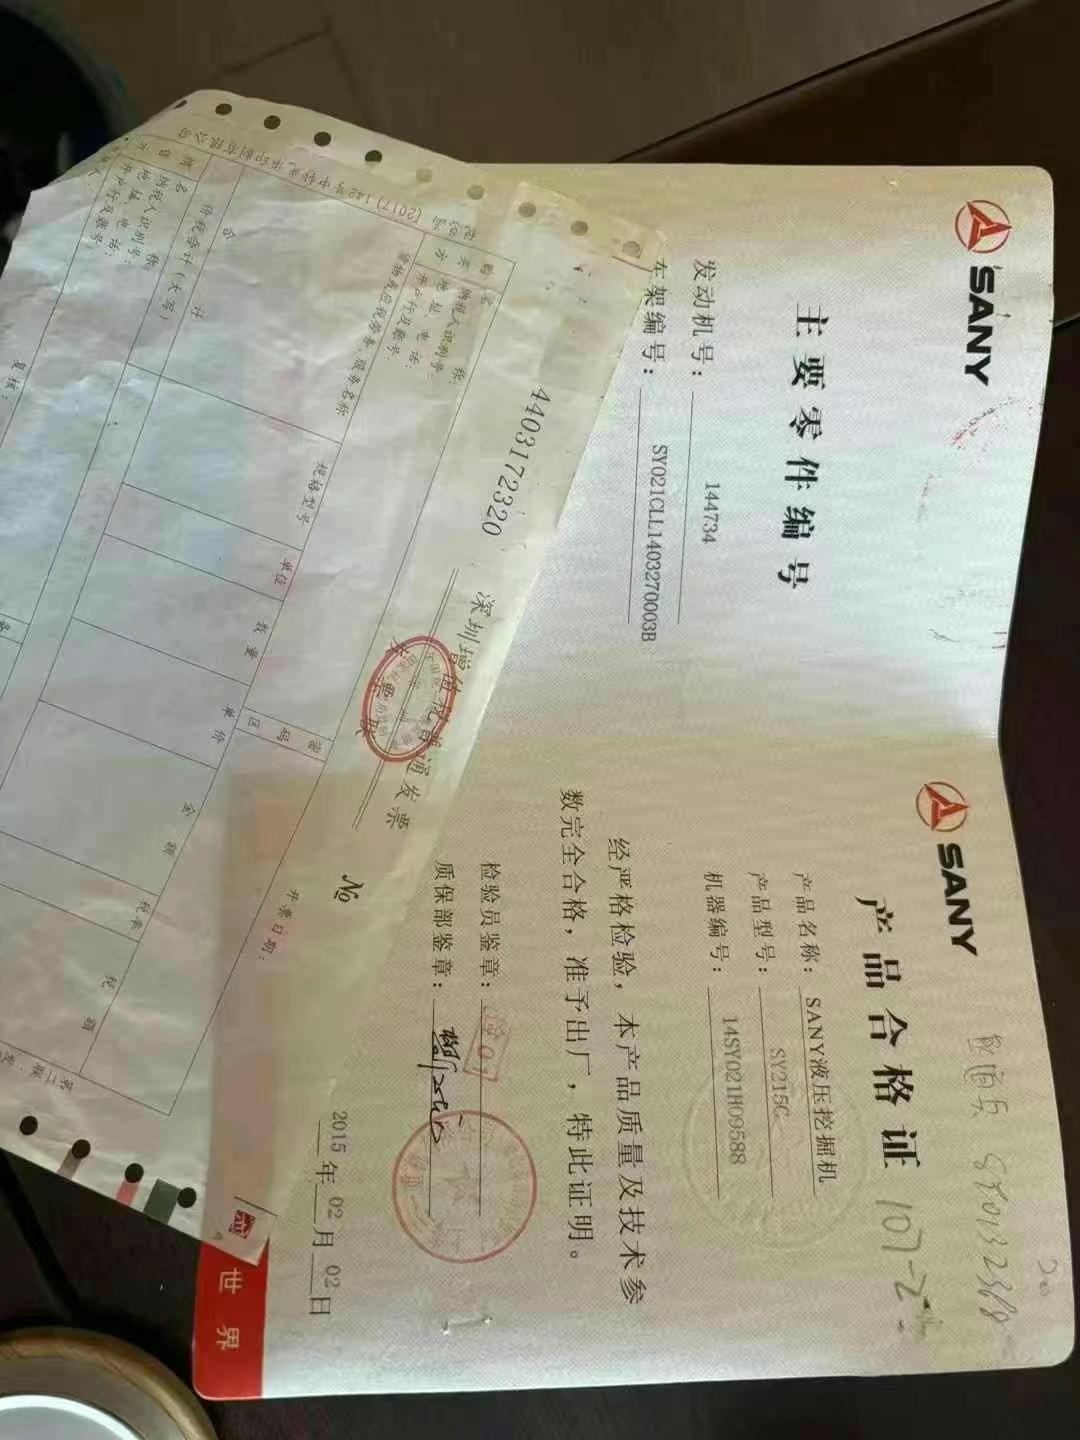 SANY
主要零件编号
发动机号：144734
车架编号：SY021CLL1403270003B
SANY
产品合格证
产品名称：SANY液压挖掘机
产品型号：SY215C
机器编号：14SY021H09588
经严格检验，本产品质量及技术参
数完全合格，准予出厂，特此证明。
检验员鉴章：
质保部鉴章：
2015年02月02日
107-2
世界
4403172320
深圳增值税普通发票
发票联
№
开票日期：
购买方
名称：
纳税人识别号：
地址、电话：
开户行及账号：
密码区
货物或应税劳务、服务名称
规格型号
单位
数量
单价
金额
税率
税额
合计
价税合计（大写）
销售方
名称：
纳税人识别号：
地址、电话：
开户行及账号：
复核：